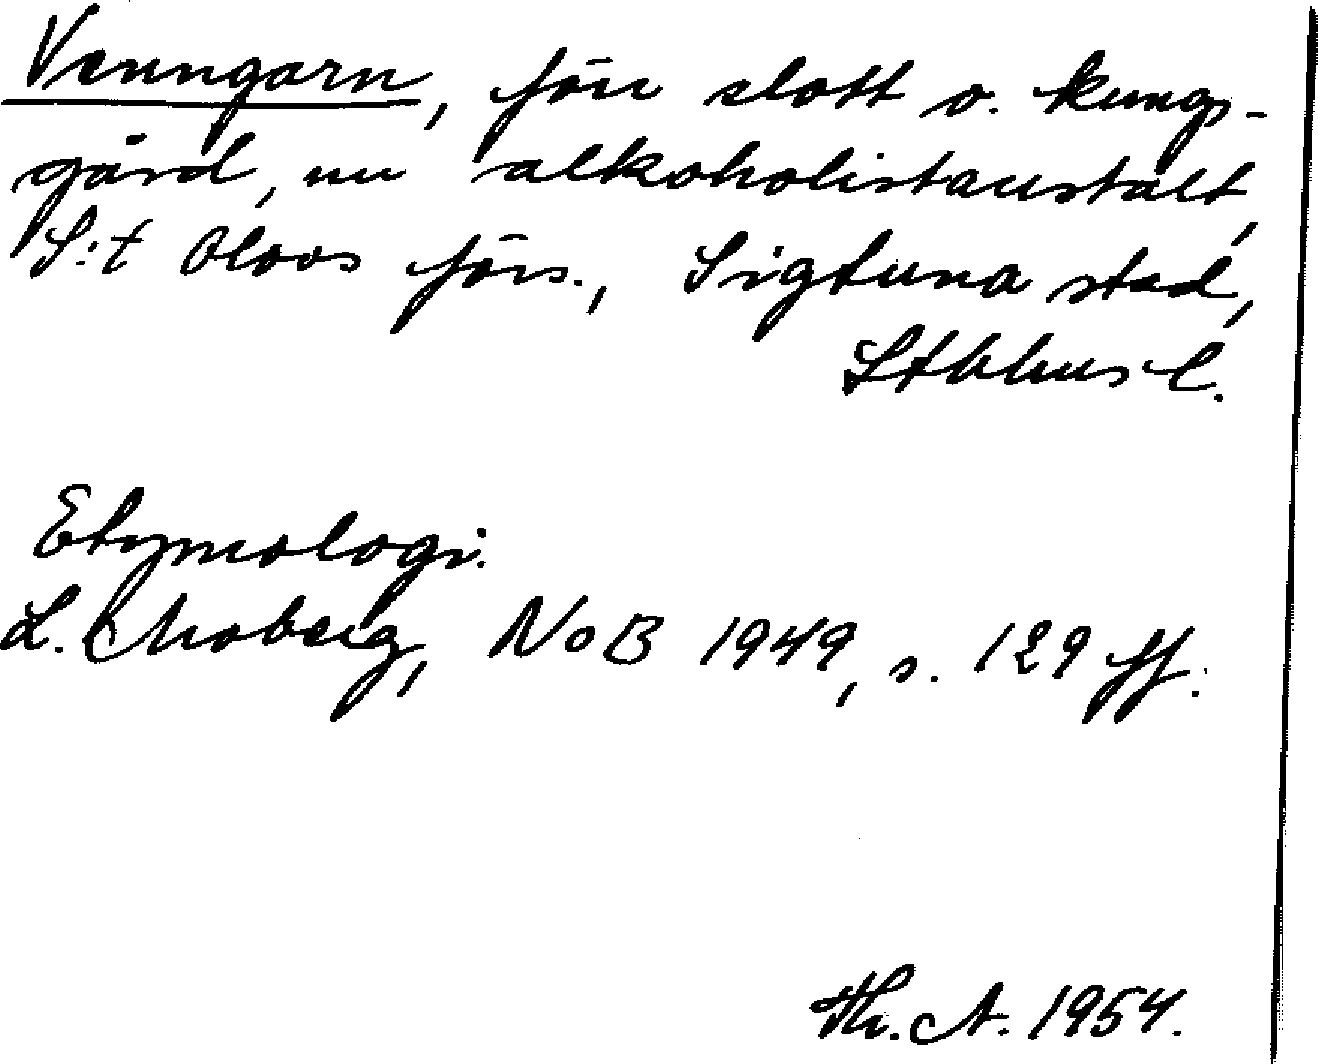 Venngarn, förr slott o. kungs-
gård, nu alkoholistanstalt,
S:t Olovs förs., Sigtuna stad,
Sthlms l.
Etymologi.
L. Moberg, NoB 1949, s. 129 ff.
Th. A. 1954.